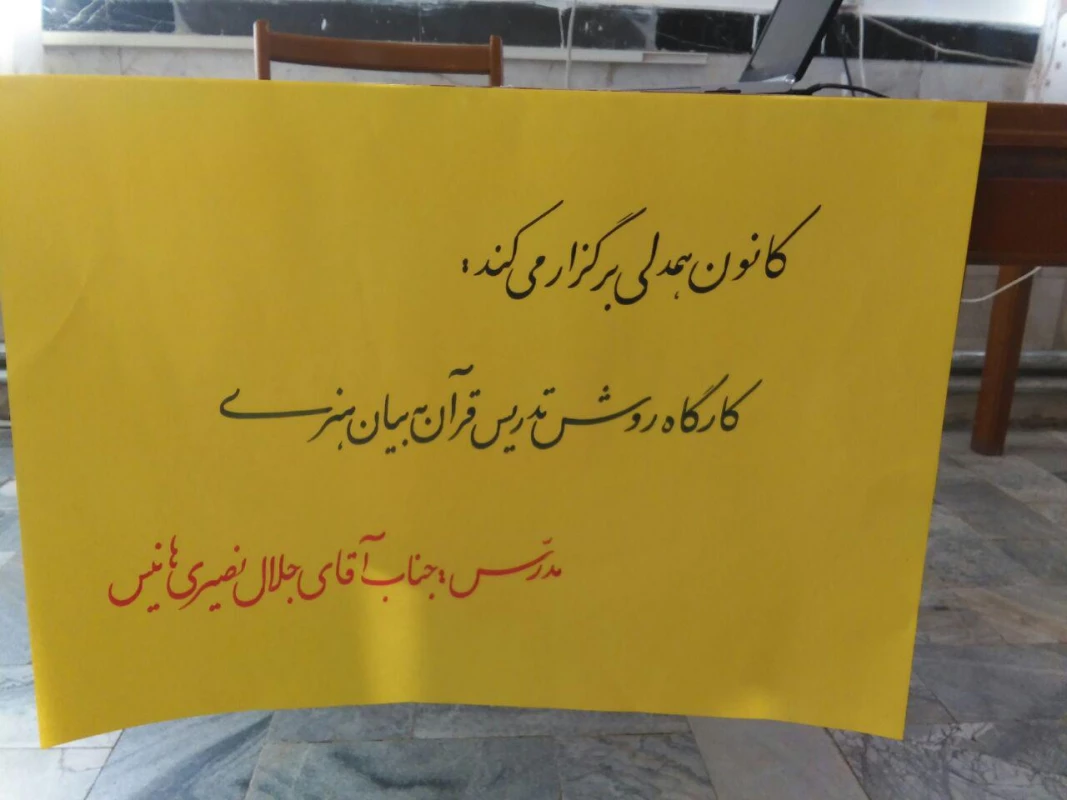 کانون همدلی برگزار می‌کند:
کارگاه روش تدریس قرآن به بیان هنری
مدرّس: جناب آقای جلال نصیری هانیس